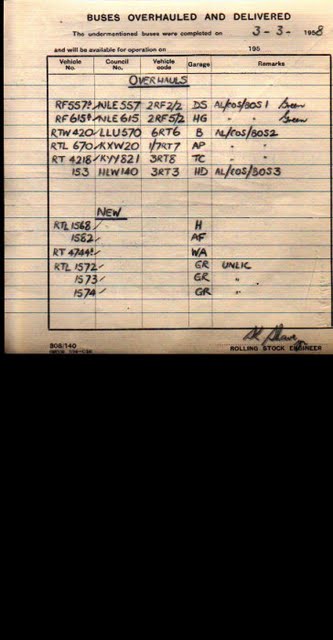 BUSES OVERHAULED AND DELIVERED
The undermentioned buses were completed on 3-3-1958
and will be available for operation on 195
Vehicle No. Council No. Vehicle code Garage Remarks
OVERHAULS
RF557 NLE557 2RF2/2 DS AL/COS/BOS1 Green
RF615 NLE615 2RF5/2 HG " " Green
RTW420 LLU570 6RT6 B AL/COS/BOS2
RTL670 KXW20 1/7RT7 AP " "
RT4218 KYY821 3RT8 TC " "
153 HLW140 3RT3 HD AL/COS/BOS3
NEW
RTL1568 H
1582 AF
RT4744 WA
RTL1572 GR UNLIC
1573 GR "
1574 GR "
BOS/140
ROLLING STOCK ENGINEER